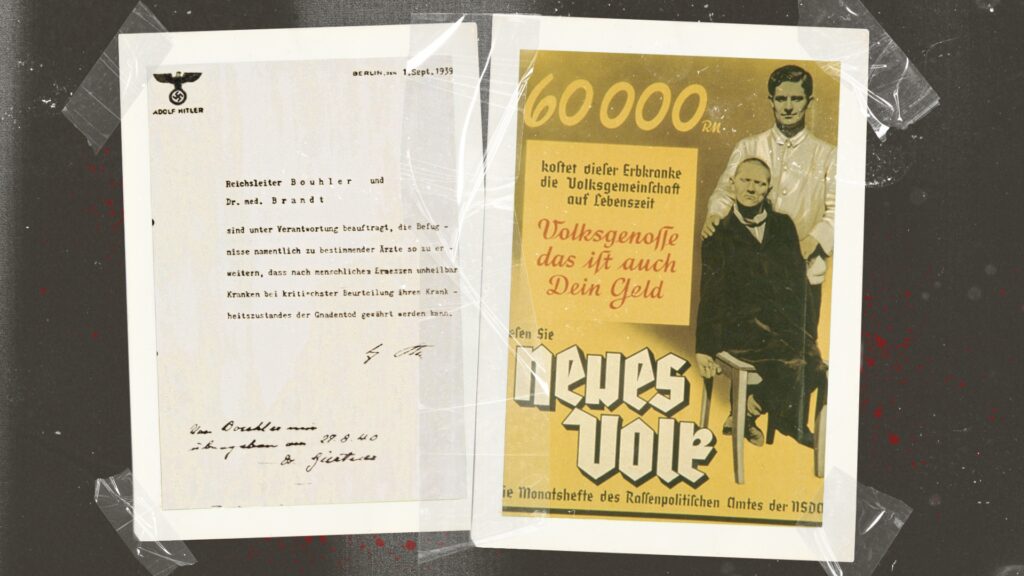 BERLIN, DEN 1.Sept.1939
ADOLF HITLER
Reichsleiter B o u h l e r und
Dr. med. B r a n d t
sind unter Verantwortung beauftragt, die Befug -
nisse namentlich zu bestimmender Ärzte so zu er -
weitern, dass nach menschlichem Ermessen unheilbar
Kranken bei kritischster Beurteilung ihres Krank -
heitszustandes der Gnadentod gewährt werden kann.
Von Bouhler mir
übergeben am 27.8.40
Dr. Gürtner
60000 RM
kostet dieser Erbkranke
die Volksgemeinschaft
auf Lebenszeit
Volksgenosse
das ist auch
Dein Geld
esen Sie
neues
Volk
ie Monatshefte des Rassenpolitischen Amtes der NSDA